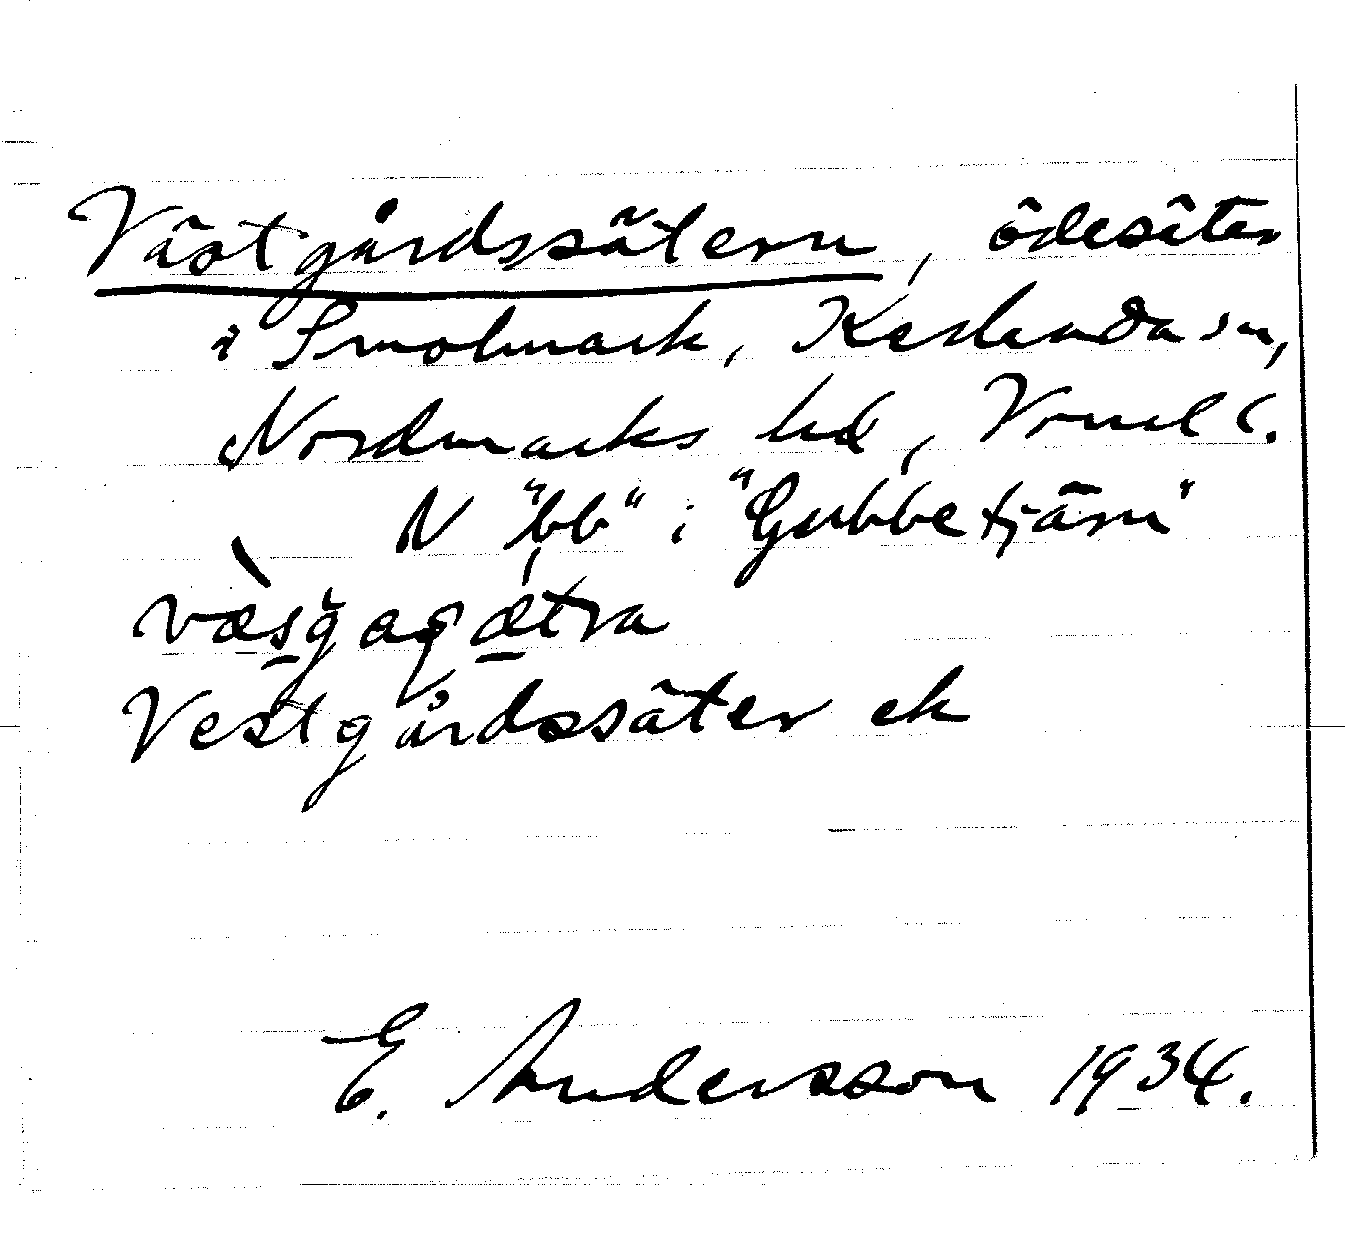 Västgårdssätern, ödesäter
i Smolmark, Karlanda sn,
Nordmarks hd, Vrml l.
N "bb" i "Gubbetjärn"
Vestgårdssäter ek
E. Andersson 1934.